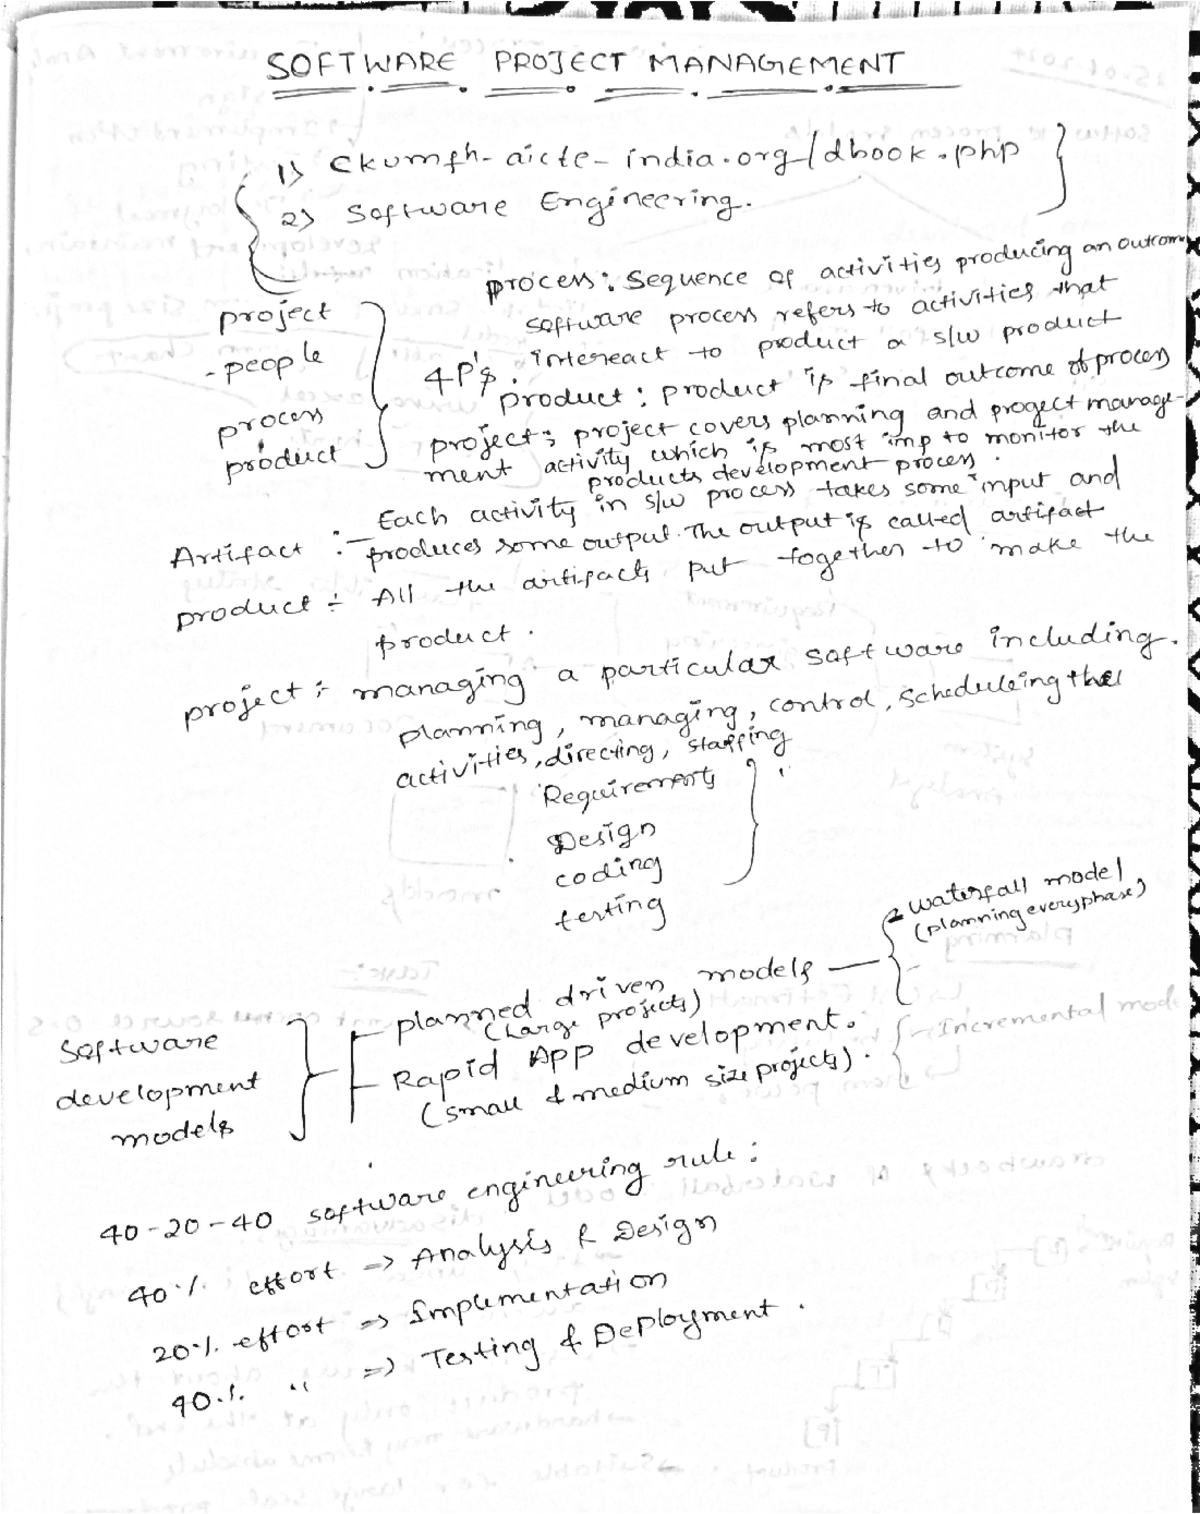 SOFTWARE PROJECT MANAGEMENT
1) Ekumfh-aicte-india.org/dbook.php
2) Software Engineering.
process: Sequence of activities producing an outcome
software process refers to activities that
intereact to product a s/w product
project
- people
process
product
4P's.
product: product is final outcome of process
project: project covers planning and progect manage-
ment activity which is most imp to monitor the
products development process.
Artifact :- Each activity in s/w process takes some input and
produces some output. The output is called artifact
product :- All the artifacts put together to make the
product.
project :- managing a particular software including.
planning, managing, control, scheduleing the
activities, directing, staffing
Requirements
Design
coding
testing
Software
development
models
planned driven models
(Large projects)
waterfall model
(planning every phase)
Rapid App development.
(small & medium size projects).
- Incremental mod
40-20-40 software engineering rule:
40% effort => Analysis & Design
20% effort => Implementation
40% " => Testing & Deployment.